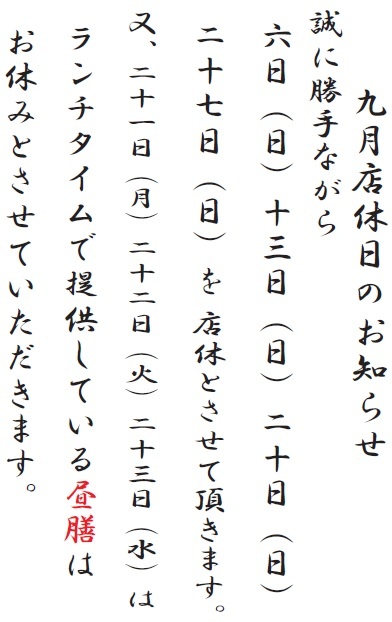 九月店休日のお知らせ
誠に勝手ながら
六日（日）十三日（日）二十日（日）
二十七日（日）を店休とさせて頂きます。
又、二十一日（月）二十二日（火）二十三日（水）は
ランチタイムで提供している昼膳は
お休みとさせていただきます。